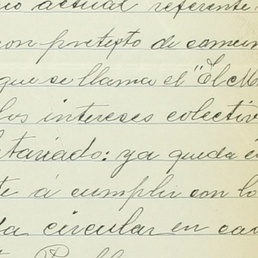 actual referente
con pretexto de comun
que se llama el "El M
los intereses colectiv
tariado: ya queda
te á cumplir con lo
da circular en